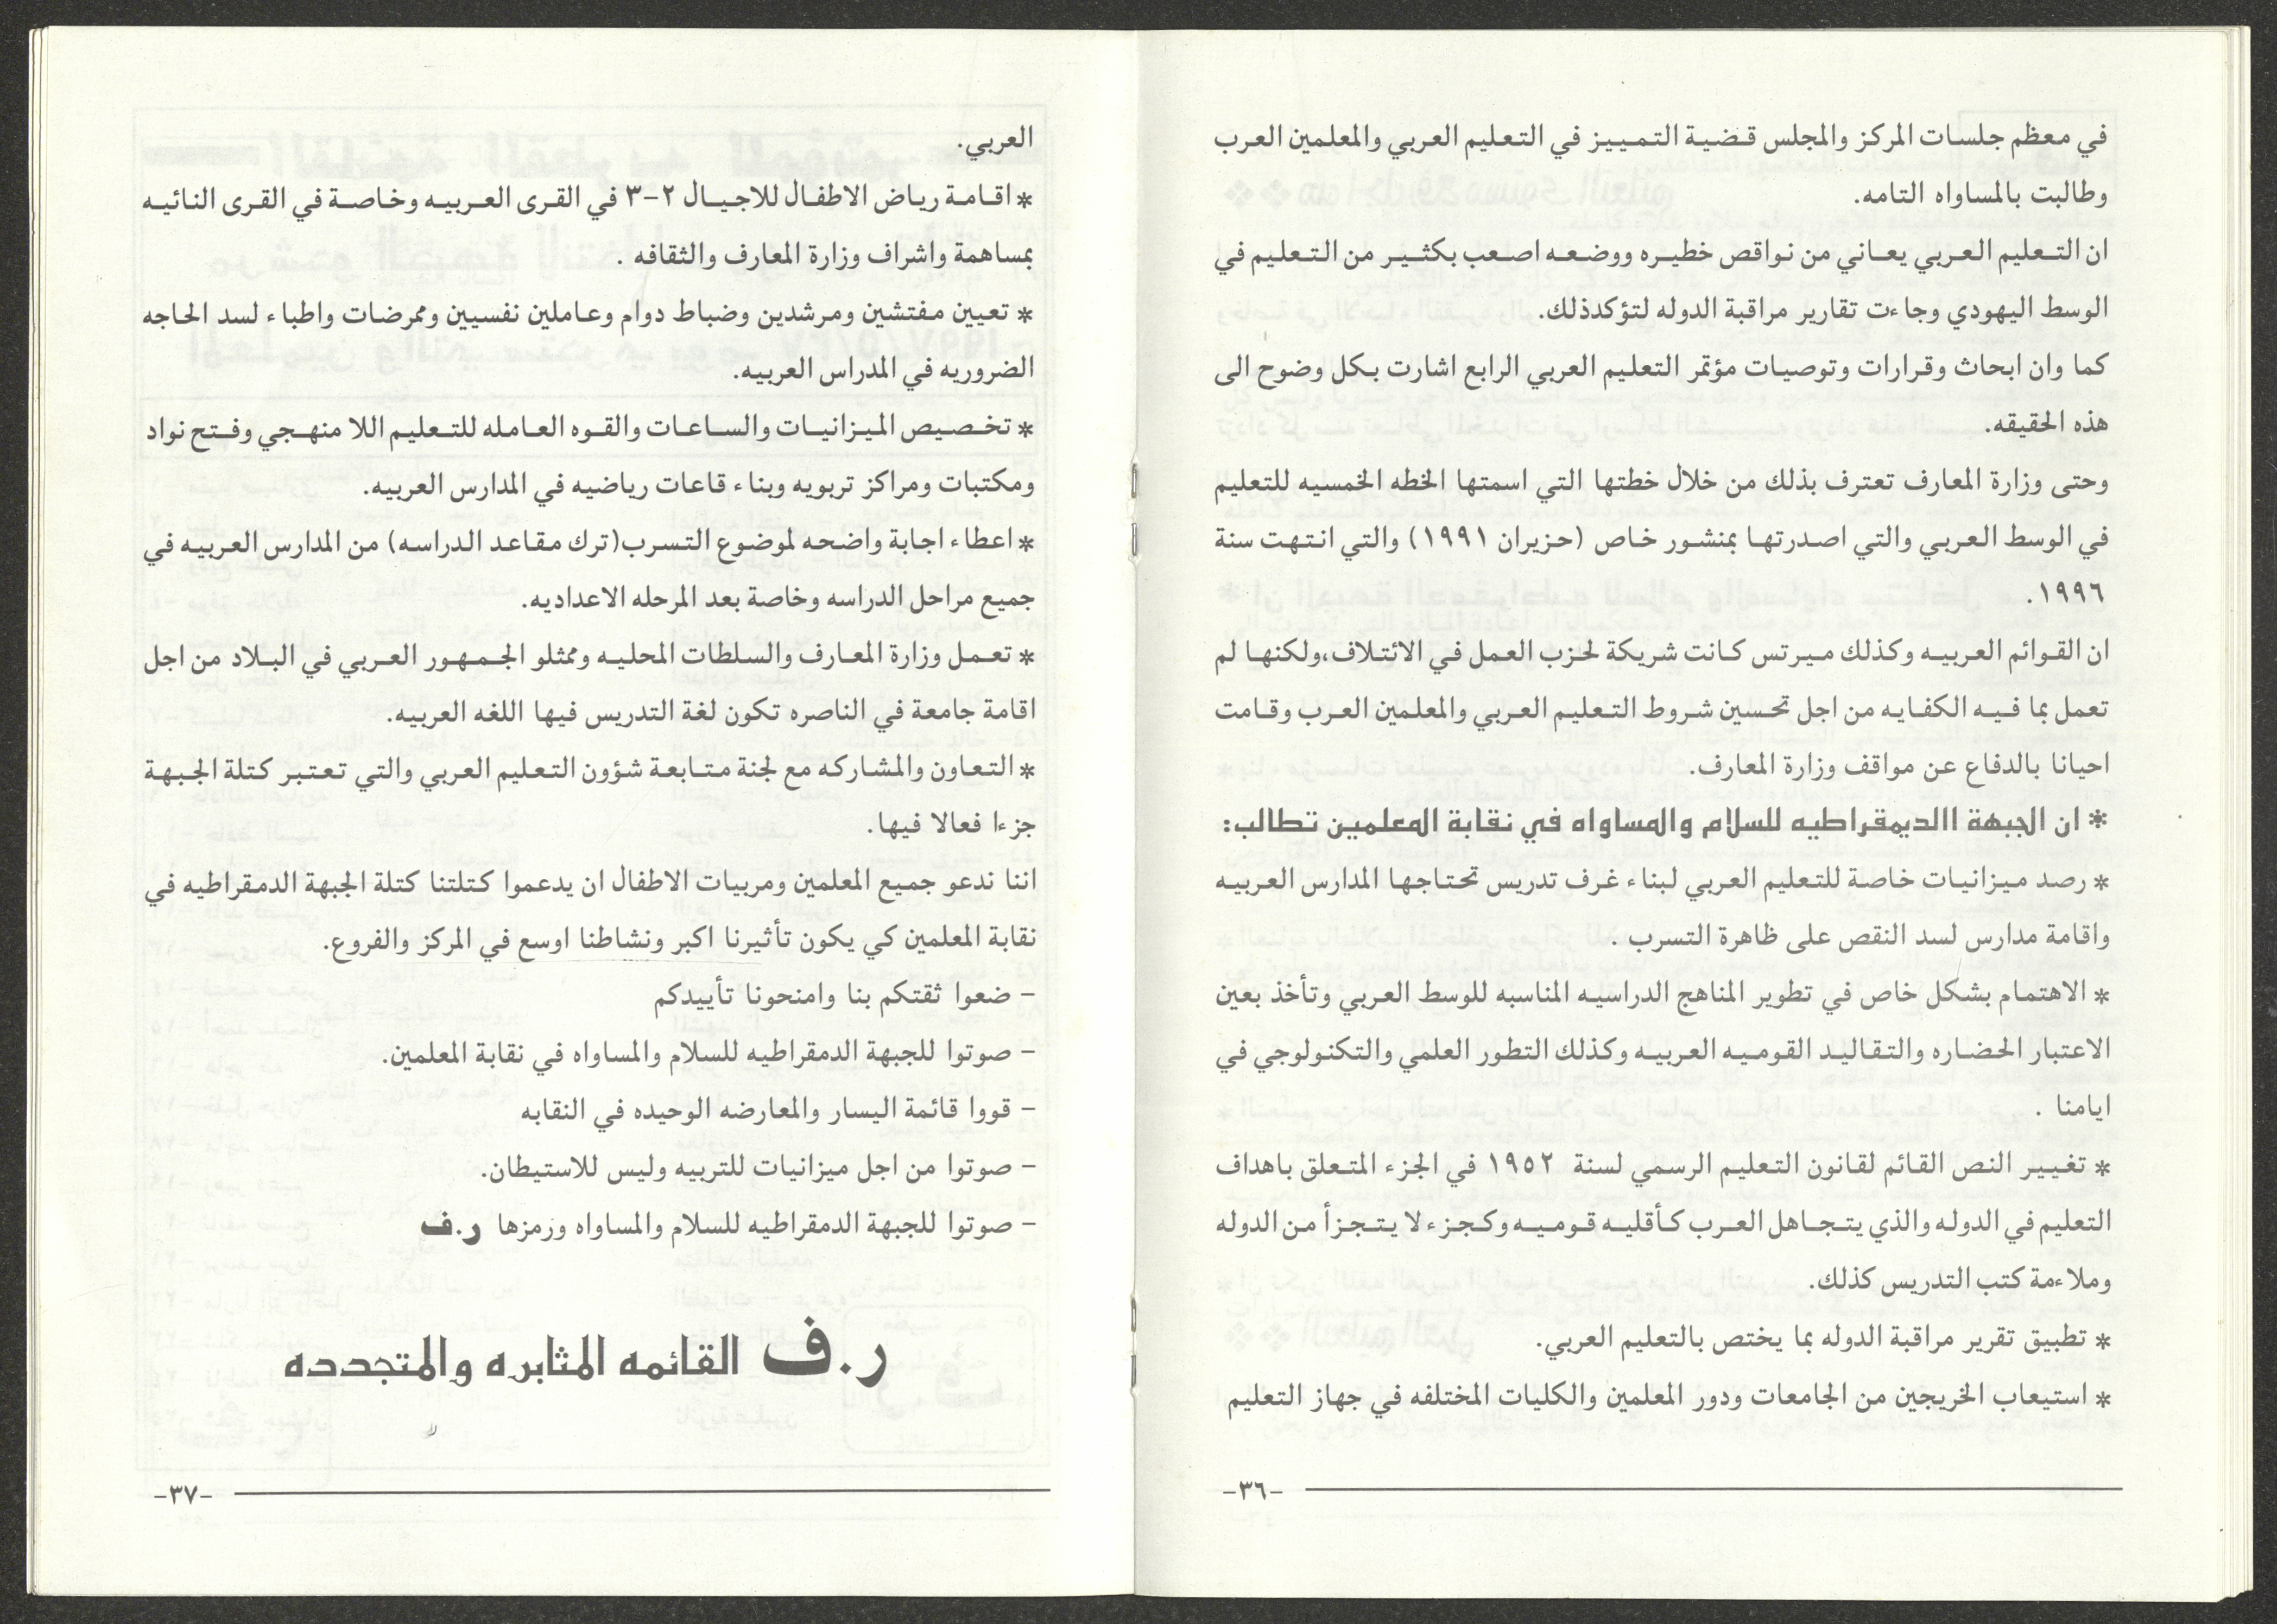 في معظم جلسات المركز والمجلس قضية التمييز في التعليم العربي والمعلمين العرب
وطالبت بالمساواه التامه.
ان التعليم العربي يعاني من نواقص خطيره ووضعه اصعب بكثير من التعليم في
الوسط اليهودي وجاءت تقارير مراقبة الدوله لتؤكدذلك.
كما وان ابحاث وقرارات وتوصيات مؤتمر التعليم العربي الرابع اشارت بكل وضوح الى
هذه الحقيقه.
وحتى وزارة المعارف تعترف بذلك من خلال خطتها التي اسمتها الخطه الخمسيه للتعليم
في الوسط العربي والتي اصدرتها بمنشور خاص (حزيران ١٩٩١) والتي انتهت سنة
١٩٩٦.
ان القوائم العربيه وكذلك ميرتس كانت شريكة لحزب العمل في الائتلاف،ولكنها لم
تعمل بما فيه الكفايه من اجل تحسين شروط التعليم العربي والمعلمين العرب وقامت
احيانا بالدفاع عن مواقف وزارة المعارف.
* ان الجبهة االديمقراطيه للسلام والمساواه في نقابة المعلمين تطالب:
* رصد ميزانيات خاصة للتعليم العربي لبناء غرف تدريس تحتاجها المدارس العربيه
واقامة مدارس لسد النقص على ظاهرة التسرب .
* الاهتمام بشكل خاص في تطوير المناهج الدراسيه المناسبه للوسط العربي وتأخذ بعين
الاعتبار الحضاره والتقاليد القوميه العربيه وكذلك التطور العلمي والتكنولوجي في
ايامنا .
* تغيير النص القائم لقانون التعليم الرسمي لسنة ١٩٥٢ في الجزء المتعلق باهداف
التعليم في الدوله والذي يتجاهل العرب كأقليه قوميه وكجزء لا يتجزأ من الدوله
وملاءمة كتب التدريس كذلك.
* تطبيق تقرير مراقبة الدوله بما يختص بالتعليم العربي.
* استيعاب الخريجين من الجامعات ودور المعلمين والكليات المختلفه في جهاز التعليم
-٣٦-
العربي.
* اقامة رياض الاطفال للاجيال ٢-٣ في القرى العربيه وخاصة في القرى النائيه
بمساهمة واشراف وزارة المعارف والثقافه .
* تعيين مفتشين ومرشدين وضباط دوام وعاملين نفسيين وممرضات واطباء لسد الحاجه
الضروريه في المدراس العربيه.
* تخصيص الميزانيات والساعات والقوه العامله للتعليم اللا منهجي وفتح نواد
ومكتبات ومراكز تربويه وبناء قاعات رياضيه في المدارس العربيه.
* اعطاء اجابة واضحه لموضوع التسرب(ترك مقاعد الدراسه) من المدارس العربيه في
جميع مراحل الدراسه وخاصة بعد المرحله الاعداديه.
* تعمل وزارة المعارف والسلطات المحليه وممثلو الجمهور العربي في البلاد من اجل
اقامة جامعة في الناصره تكون لغة التدريس فيها اللغه العربيه.
* التعاون والمشاركه مع لجنة متابعة شؤون التعليم العربي والتي تعتبر كتلة الجبهة
جزءا فعالا فيها.
اننا ندعو جميع المعلمين ومربيات الاطفال ان يدعموا كتلتنا كتلة الجبهة الدمقراطيه في
نقابة المعلمين كي يكون تأثيرنا اكبر ونشاطنا اوسع في المركز والفروع.
- ضعوا ثقتكم بنا وامنحونا تأييدكم
- صوتوا للجبهة الدمقراطيه للسلام والمساواه في نقابة المعلمين.
- قووا قائمة اليسار والمعارضه الوحيده في النقابه
- صوتوا من اجل ميزانيات للتربيه وليس للاستيطان.
- صوتوا للجبهة الدمقراطيه للسلام والمساواه ورمزها ر.ف
ر.ف القائمه المثابره والمتجدده
-٣٧-